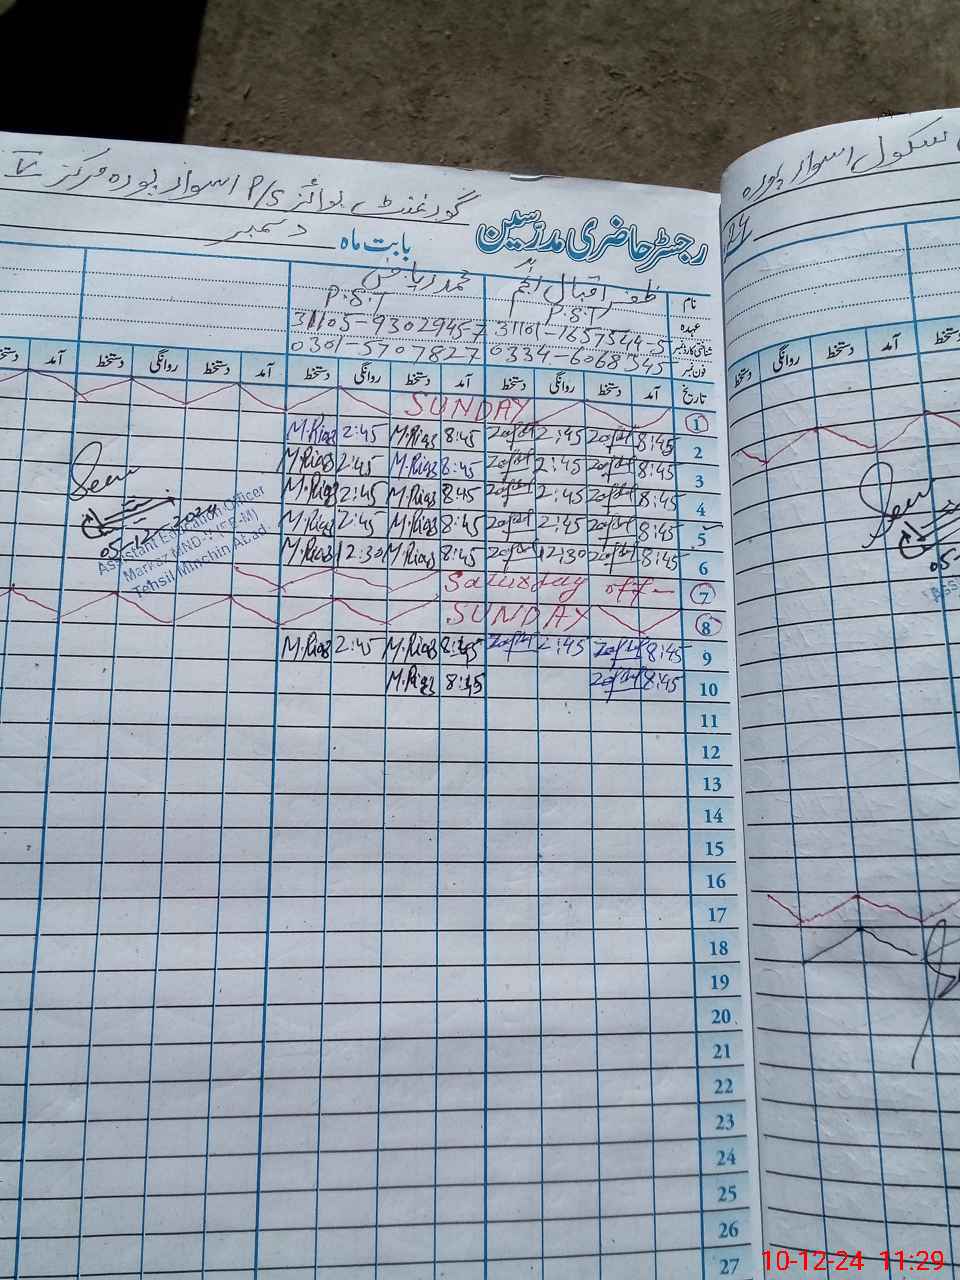 گورنمنٹ بوائز P/S اسوار پورہ مرکز V
رجسٹر حاضری مدرسین
بابت ماہ دسمبر
نام ظفر اقبال انجم محمد ریاض
عہدہ P.S.T P.S.T
شناختی کارڈ نمبر 31101-1657544-5 31105-9302945-7
فون نمبر 0334-6068345 0301-5707827
تاریخ آمد دستخط روانگی دستخط آمد دستخط روانگی دستخط آمد دستخط روانگی دستخط آمد
1 SUNDAY
2 8:45 2:45 8:45 M.Riaz 2:45 M.Riaz
3 8:45 2:45 8:45 M.Riaz 2:45 M.Riaz
4 8:45 2:45 8:45 M.Riaz 2:45 M.Riaz
5 8:45 2:45 8:45 M.Riaz 2:45 M.Riaz
6 8:45 12:30 8:45 M.Riaz 12:30 M.Riaz
7 Saturday off
8 SUNDAY
9 8:45 2:45 8:45 M.Riaz 2:45 M.Riaz
10 8:45 8:45 M.Riaz
11
12
13
14
15
16
17
18
19
20
21
22
23
24
25
26
27
Seen
05-12-2024
Assistant Education Officer
Markaz MND-V (EE-M)
Tehsil Minchin Abad.
سکول اسوار پورہ
آمد دستخط روانگی دستخط
Seen
05-
10-12-24 11:29